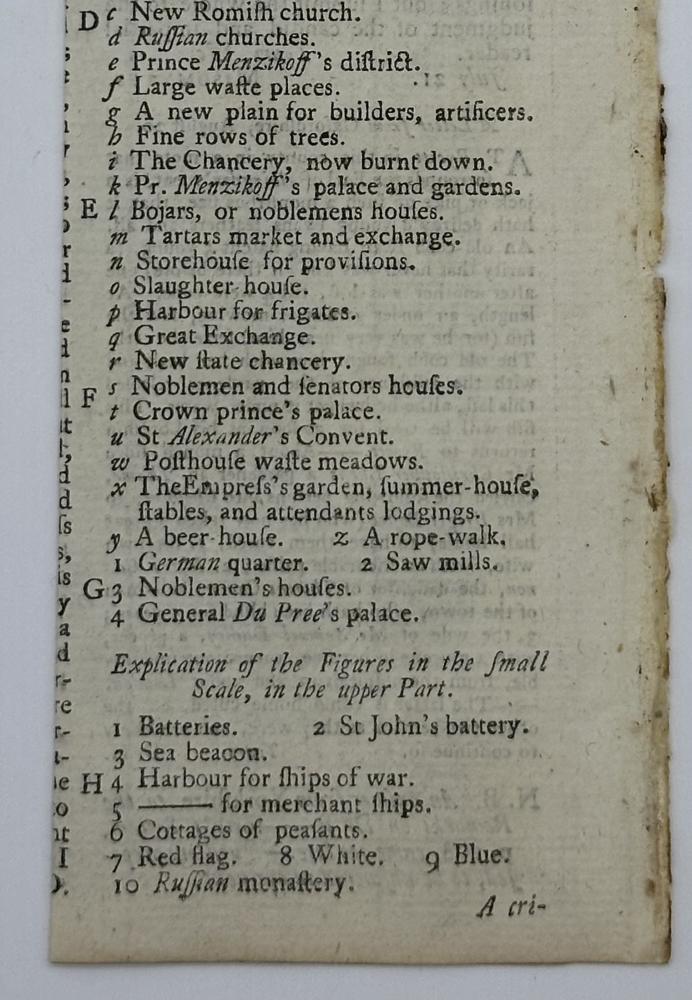 D c New Romiſh church.
d Ruſſian churches.
e Prince Menzikoff's diſtrict.
f Large waſte places.
g A new plain for builders, artificers.
h Fine rows of trees.
i The Chancery, now burnt down.
k Pr. Menzikoff's palace and gardens.
E l Bojars, or noblemens houſes.
m Tartars market and exchange.
n Storehouſe for proviſions.
o Slaughter-houſe.
p Harbour for frigates.
q Great Exchange.
r New ſtate chancery.
F s Noblemen and ſenators houſes.
t Crown prince's palace.
u St Alexander's Convent.
w Poſthouſe waſte meadows.
x TheEmpreſs's garden, ſummer-houſe,
ſtables, and attendants lodgings.
y A beer-houſe. z A rope-walk.
1 German quarter. 2 Saw mills.
G 3 Noblemen's houſes.
4 General Du Pree's palace.
Explication of the Figures in the ſmall
Scale, in the upper Part.
1 Batteries. 2 St John's battery.
3 Sea beacon.
H 4 Harbour for ſhips of war.
5 ——— for merchant ſhips.
6 Cottages of peaſants.
7 Red flag. 8 White. 9 Blue.
10 Ruſſian monaſtery.
A cri-